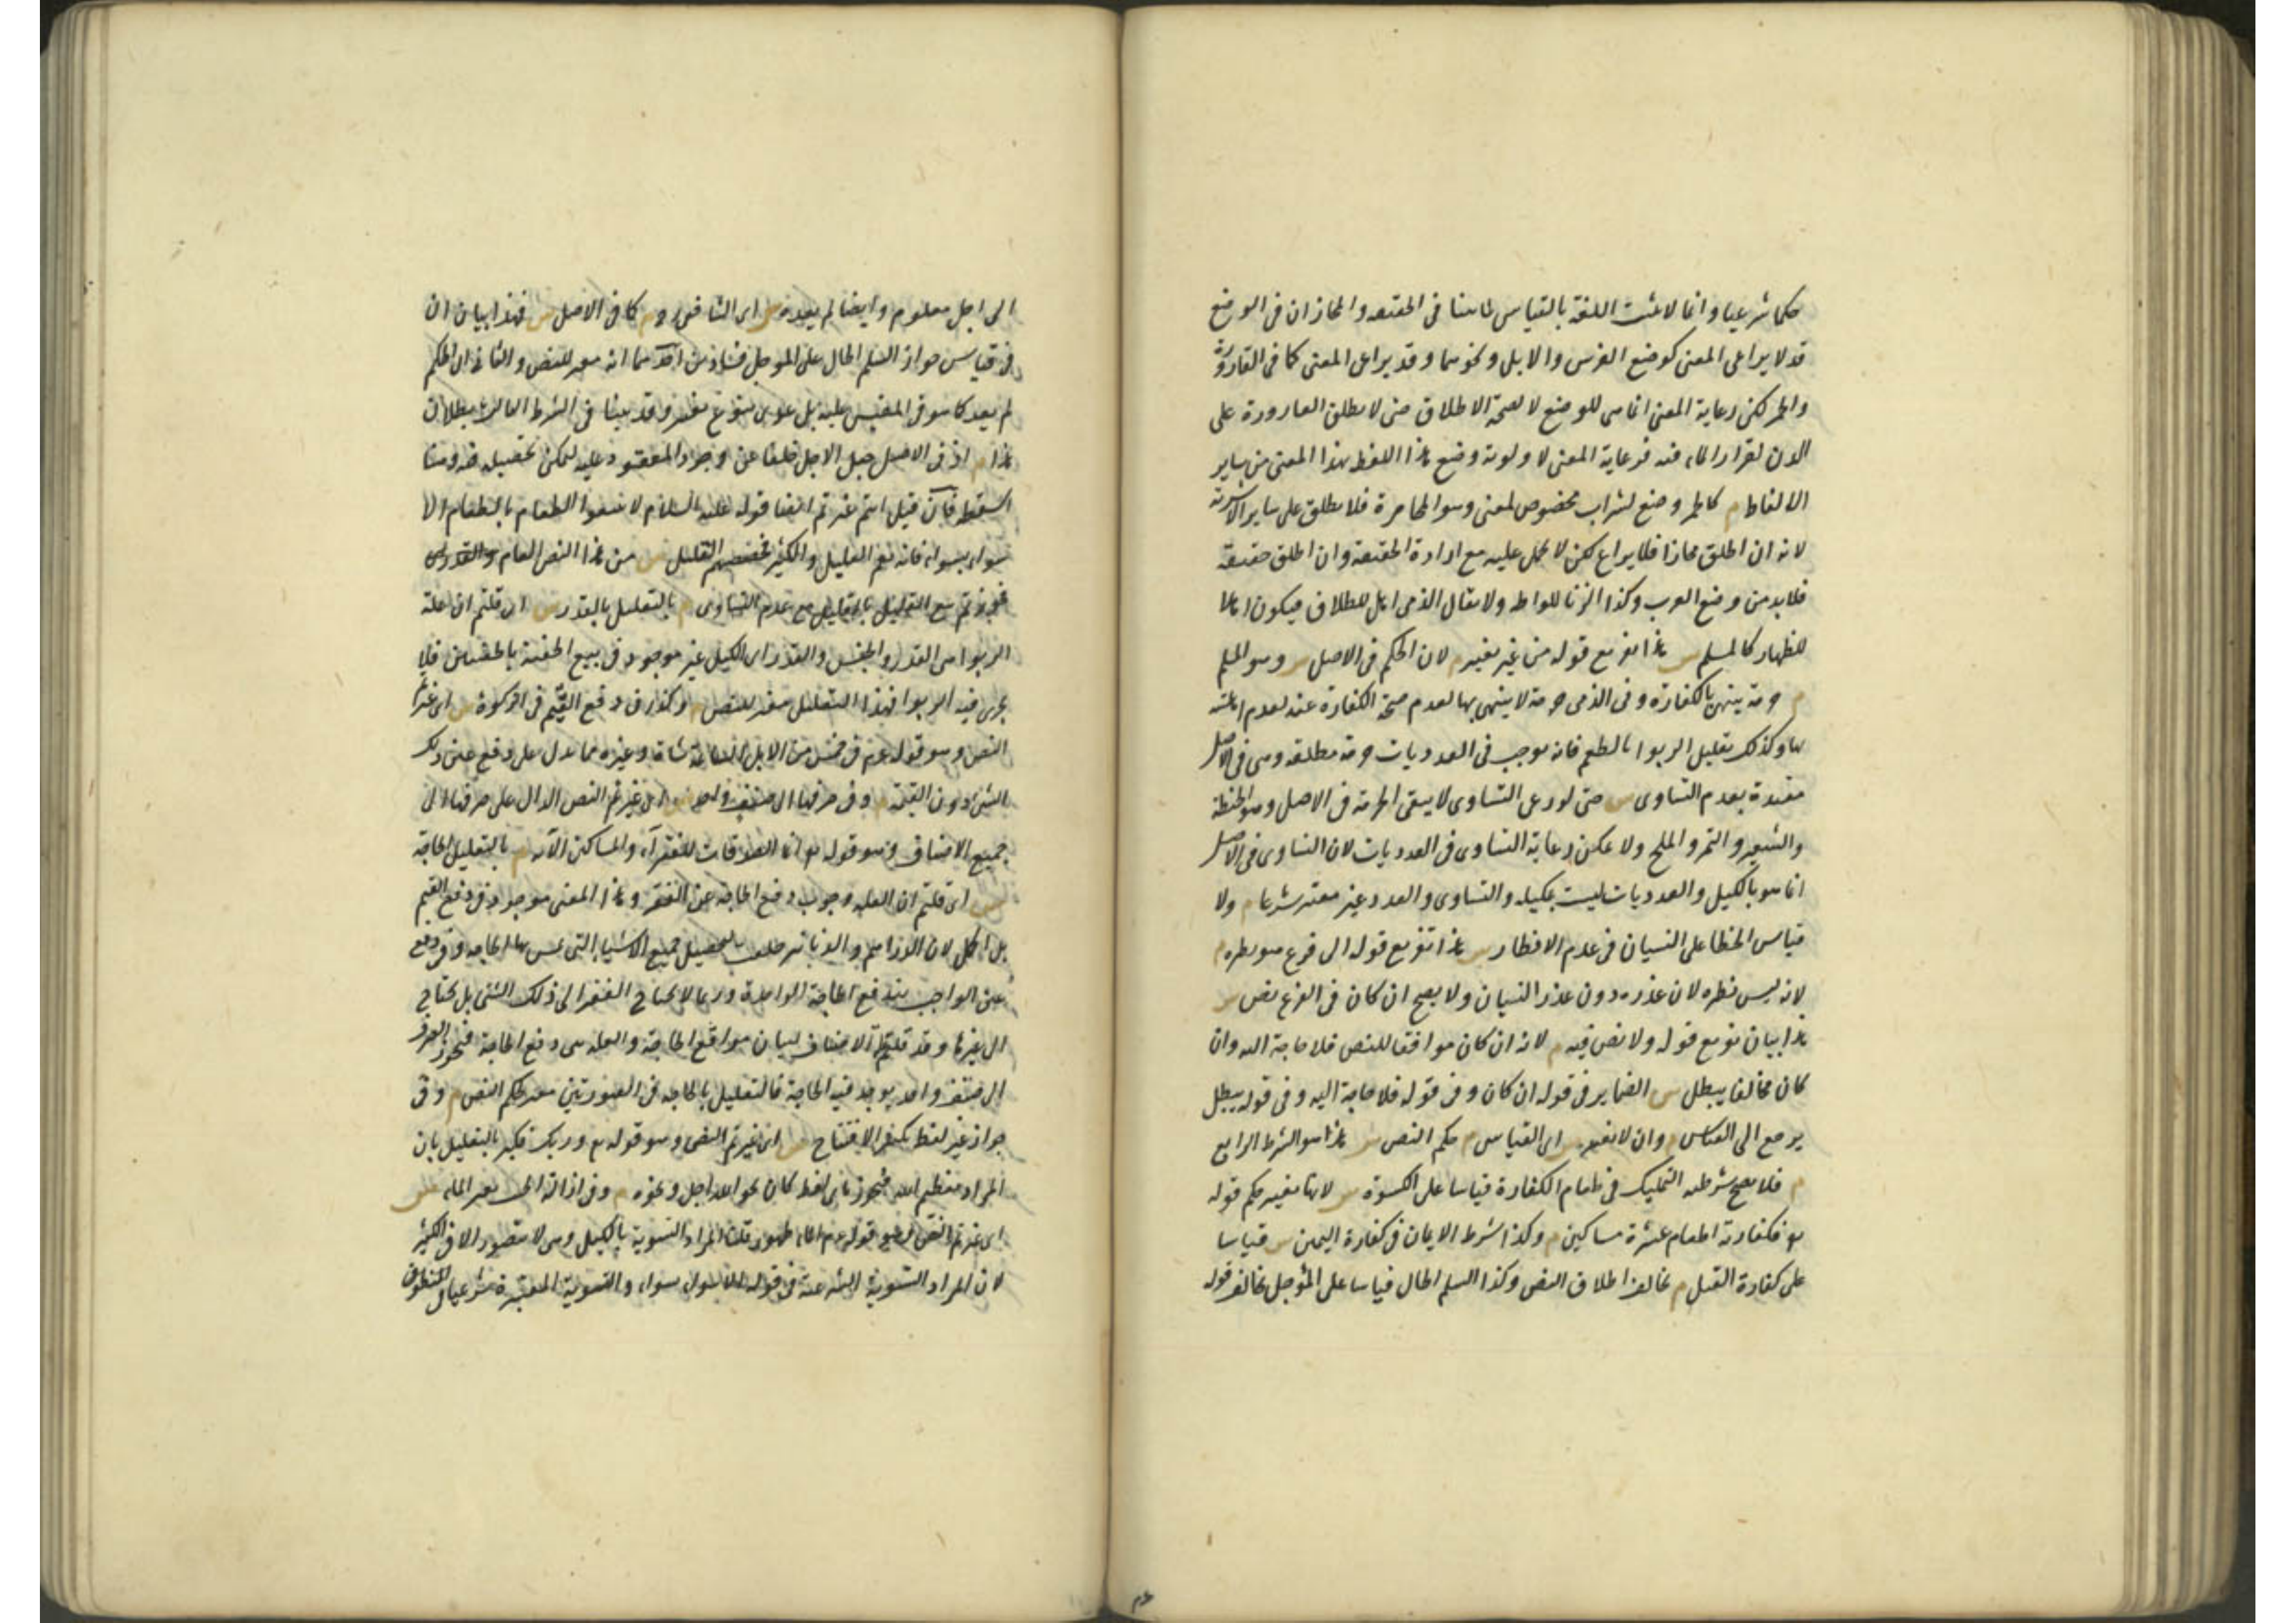 حكما شرعيا وانما لا يثبت اللغة بالقياس لما بينا فى الحقيقة والمجاز ان فى الوضع
قد لا يراعى المعنى كوضع الفرس والابل ونحوهما وقد يراعى المعنى كما فى القارورة
والخمر لكن رعاية المعنى انما هى للوضع لا لصحة الاطلاق حتى لا يطلق القارورة على
الدن لقرار الماء فيه فرعاية المعنى لاولوية وضع هذا اللفظ بهذا المعنى من بين ساير
الالفاظ م كالخمر وضع لشراب مخصوص لمعنى وهو المخامرة فلا يطلق على ساير الاشربة
لانه ان اطلق مجازا فلا نزاع لكن لا يحمل عليه مع ارادة الحقيقة وان اطلق حقيقة
فلا بد من وضع العرب وكذا الزنا للواطة ولا يقال الذمى اهل للطلاق فيكون اهلا
للظهار كالمسلم س هذا تفريع قوله من غير تغيير م لان الحكم فى الاصل س وهو المسلم
م حرمة ينتهى بالكفارة وفى الذمى حرمة لا ينتهى بها لعدم صحة الكفارة عنه لعدم اهليته
لها وكذلك تعليل الربوا بالطعم فانه يوجب فى العدديات حرمة مطلقة وهى فى الاصل
مقيدة بعدم التساوى س حتى لو رعى التساوى لا يبقى الحرمة فى الاصل وهو الحنطة
والشعير والتمر والملح ولا يمكن رعاية التساوى فى العدديات لان التساوى فى الاصل
انما هو بالكيل والعدديات ليست بمكيلة والتساوى والعدد غير معتبر شرعا م ولا
قياس الخطا على النسيان فى عدم الافطار س هذا تفريع قوله الى فرع هو نظيره م
لانه ليس نظيره لان عذره دون عذر النسيان ولا يصح ان كان فى الفرع نص س
هذا بيان تفريع قوله ولا نص فيه م لانه ان كان موافقا للنص فلا حاجة اليه وان
كان مخالفا يبطل س الضماير فى قوله ان كان وفى قوله فلا حاجة اليه وفى قوله يبطل
يرجع الى القياس م وان لا يغير س اى القياس م حكم النص س هذا هو الشرط الرابع
م فلا يصح شرطية التمليك فى طعام الكفارة قياسا على الكسوة س لانها تغير حكم قوله
تع فكفارته اطعام عشرة مساكين م وكذا شرط الايمان فى كفارة اليمين س قياسا
على كفارة القتل م يخالف اطلاق النص وكذا السلم الحال قياسا على المؤجل يخالف قوله
الى اجل معلوم وايضا لم يعده س اى الشافعى رح م كما فى الاصل س فهذا بيان ان
فى قياس جواز السلم الحال على المؤجل فسادين احدهما انه مغير للنص والثانى ان الحكم
لم يعد كما هو فى المقيس عليه بل عدى بنوع تغير وقد بينا فى الشرط الثالث بطلان
هذا م اذ فى الاصل جعل الاجل خلفا عن وجود المعقود عليه ليمكن تحصيله فيه وهنا
اسقط فان قيل انتم غيرتم ايضا قوله عليه السلام لا تبيعوا الطعام بالطعام الا
سواء بسواء فانه يعم القليل والكثير فخصصتم القليل س من هذا النص العام
فجوزتم بيع القليل بالقليل مع عدم التساوى م بالتعليل بالقدر س اى قلتم ان علة
الربوا هى القدر والجنس والقدر اى الكيل غير موجود فى بيع الحفنة بالحفنتين فلا
يجرى فيه الربوا فهذا التعليل مغير للنص م وكذا فى دفع القيم فى الزكوة س اى غيرتم
النص وهو قوله عم فى خمس من الابل السائمة شاة وغيره مما يدل على دفع عين ذلك
الشئ دون القيمة م وفى صرفها الى صنف واحد س اى غيرتم النص الدال على صرفها الى
جميع الاصناف وهو قوله تع انما الصدقات للفقراء والمساكين الآية م بالتعليل بالحاجة
س اى قلتم ان العلة وجوب دفع الحاجة عن الفقير وهذا المعنى موجود فى دفع القيم
بل اكمل لان الدراهم والدنانير خلقت لتحصيل جميع الاشياء التى يمس بها الحاجة وفى دفع
عين الواجب يندفع الحاجة الواحدة وربما لا يحتاج الفقير الى ذلك الشئ بل يحتاج
الى غيرها وقد قلتم الاصناف لبيان مواقع الحاجة والعلة هى دفع الحاجة فيجوز الصرف
الى صنف واحد يوجد فيه الحاجة فالتعليل بالحاجة فى الصورتين مغير لحكم النص م وفى
جواز غير لفظ تكبير الافتتاح س اى غيرتم النص وهو قوله تع وربك فكبر بالتعليل بان
المراد تعظيم الله فيجوز باى لفظ كان نحو الله اجل ونحوه م وفى ازالة الخبث بغير الماء س
اى غيرتم النص وهو قوله عم الماء طهور قلنا المراد التسوية بالكيل وهى لا يتصور الا فى الكثير
لان المراد التسوية الشرعية فى قوله الا سواء بسواء والتسوية المعتبرة شرعا فى المطعوم